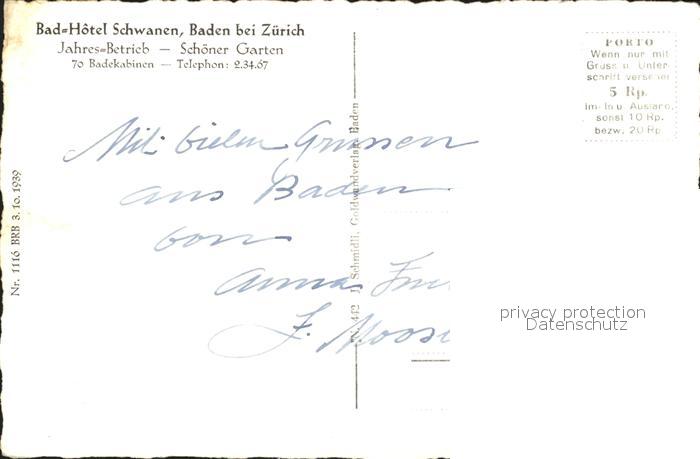 Bad=Hôtel Schwanen, Baden bei Zürich
Jahres=Betrieb — Schöner Garten
70 Badekabinen — Telephon: 2.34.67
PORTO
Wenn nur mit
Gruss u. Unter-
schrift versehen
5 Rp.
im In u. Ausland,
sonst 10 Rp.
bezw. 20 Rp.
Mit vielen Grüssen
aus Baden
von
Anna
J. Moos
Nr. 1116 BRB 3. 10. 1939
442 J. Schmidli, Goldwandverlag, Baden
privacy protection
Datenschutz